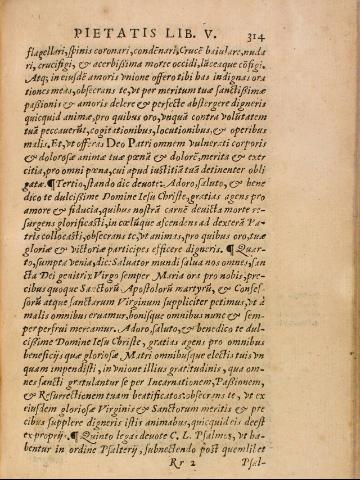 PIETATIS LIB. V. 314
flagellari, spinis coronari, condēnari, Crucē baiulare, nuda
ri, crucifigi, & acerbissima morte occidi, lāceaque cōfigi.
Atq; in eiusdē amoris vnione offero tibi has indignas ora
tiones meas, obsecrans te, vt per meritum tuæ sanctissimæ
passionis & amoris delere & perfecte abstergere digneris
quicquid animæ, pro quibus oro, vnquā contra volūtatem
tuā peccauerūt, cogitationibus, locutionibus, & operibus
malis. Et, vt offeras Deo Patri omnem vulnerati corporis
& dolorosæ animæ tuæ pœnā & dolorē, merita & exer
citia, pro omni pœna, cui apud iustitiā tuā detinentur obli
gatæ. ¶ Tertio, stando dic deuote: Adoro, saluto, & bene
dico te dulcissime Domine Iesu Christe, gratias agens pro
amore & fiducia, quibus nostrā carnē deuicta morte re-
surgens glorificasti, in cœlūque ascendens ad dexterā Pa-
tris collocasti, obsecrans te, vt animas, pro quibus oro, tuæ
gloriæ & victoriæ participes efficere digneris. ¶ Quar-
to, sumpta venia, dic: Saluator mundi salua nos omnes, san
cta Dei genitrix Virgo semper Maria ora pro nobis, pre-
cibus quoque Sanctorū Apostolorū martyrū, & Confes-
sorū atque sanctarum Virginum suppliciter petimus, vt à
malis omnibus eruamur, bonisque omnibus nunc & sem-
per perfrui mereamur. Adoro, saluto, & benedico te dul-
cissime Domine Iesu Christe, gratias agens pro omnibus
beneficijs quæ gloriosæ Matri omnibusque electis tuis vn
quam impendisti, in vnione illius gratitudinis, qua om-
nes sancti gratulantur se per Incarnationem, Passionem,
& Resurrectionem tuam beatificatos: obsecrans te, vt ex
eiusdem gloriosæ Virginis & Sanctorum meritis & pre
cibus supplere digneris istis animabus, quicquid eis deest
ex proprijs. ¶ Quinto legas deuote C. L. Psalmos, vt ha-
bentur in ordine Psalterij, subnectendo post quemlibet
Rr 2 Psal-